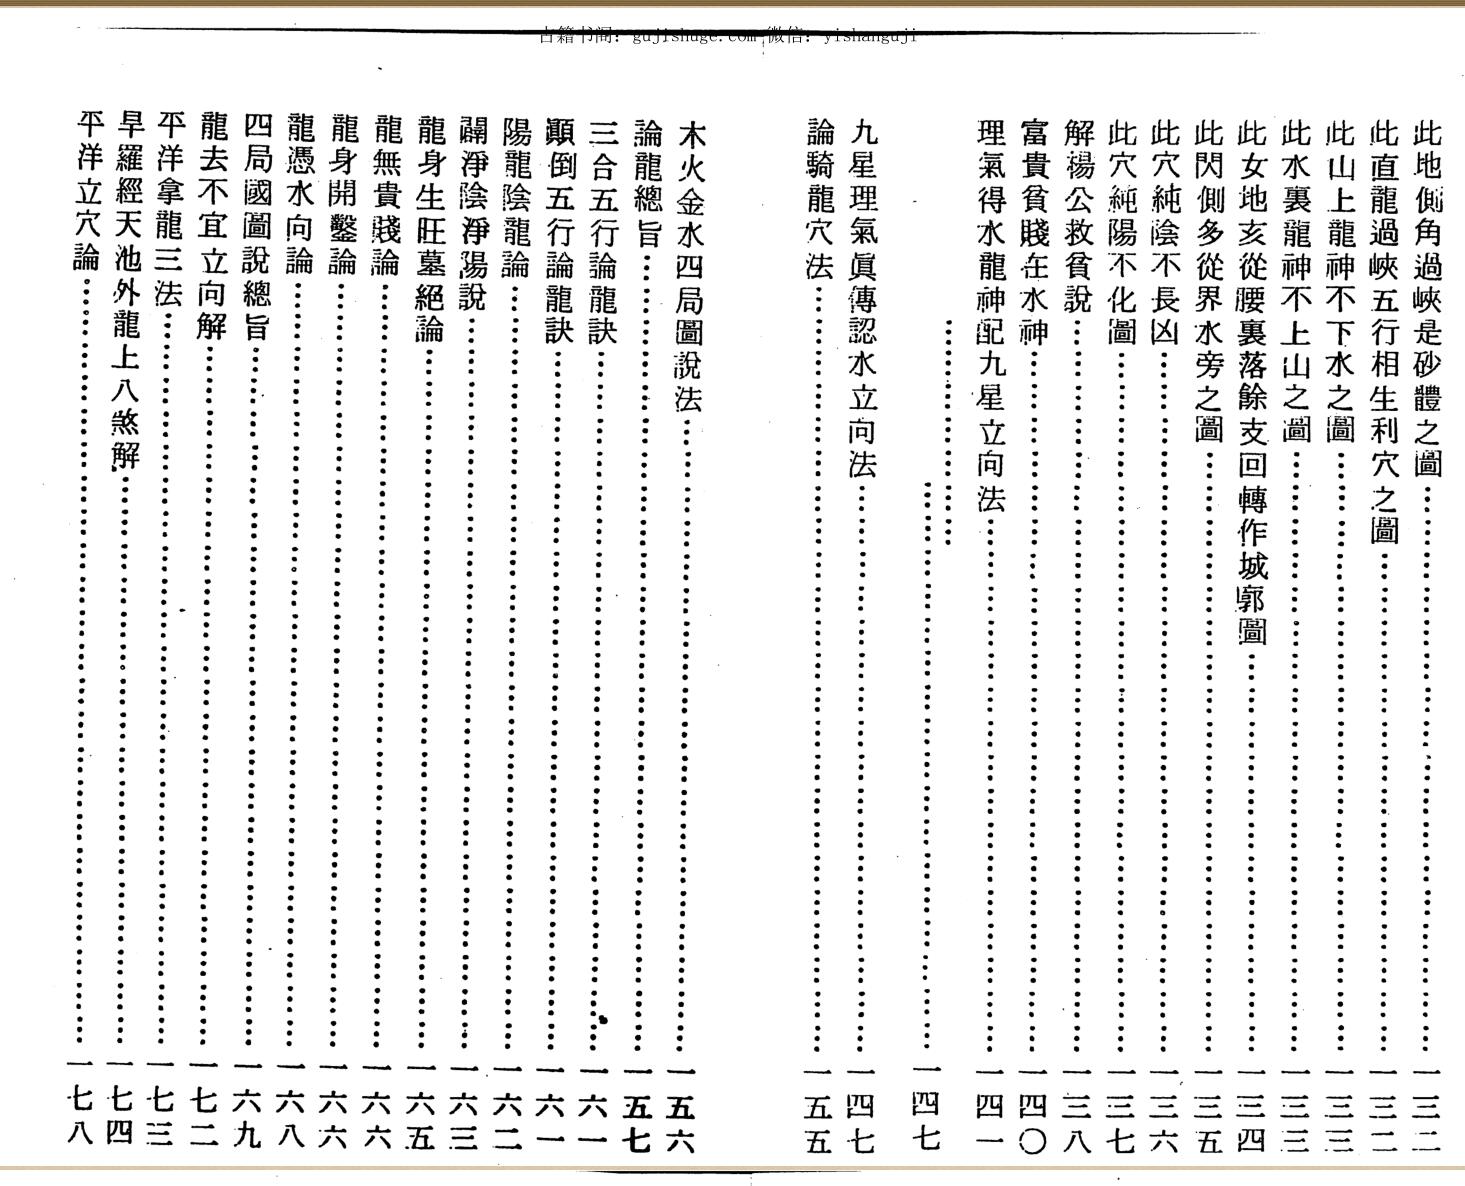 古籍书阁：gujishuge.com 微信：yishanguji
此地側角過峽是砂體之圖…………一三二
此直龍過峽五行相生利穴之圖…………一三二
此山上龍神不下水之圖…………一三三
此水裏龍神不上山之圖…………一三三
此女地亥從腰裏落餘支回轉作城廓圖…………一三四
此閃側多從界水旁之圖…………一三五
此穴純陰不長凶…………一三六
此穴純陽不化圖…………一三七
解楊公救貧說…………一三八
富貴貧賤在水神…………一四〇
理氣得水龍神配九星立向法…………一四一
…………一四七
九星理氣眞傳認水立向法…………一四七
論騎龍穴法…………一五五
木火金水四局圖說法…………一五六
論龍總旨…………一五七
三合五行論龍訣…………一六一
顚倒五行論龍訣…………一六一
陽龍陰龍論…………一六二
闢淨陰淨陽說…………一六三
龍身生旺墓絕論…………一六五
龍無貴賤論…………一六六
龍身開鑿論…………一六六
龍憑水向論…………一六八
四局國圖說總旨…………一六九
龍去不宜立向解…………一七二
平洋拿龍三法…………一七三
旱羅經天池外龍上八煞解…………一七四
平洋立穴論…………一七八